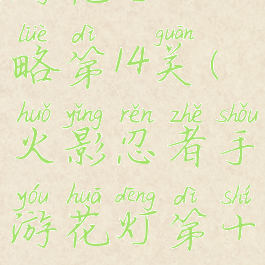 lüè dì guān
略第14关(
huǒ yǐng rěn zhě shǒu
火影忍者手
yóu huā dēng dì shí
游花灯第十